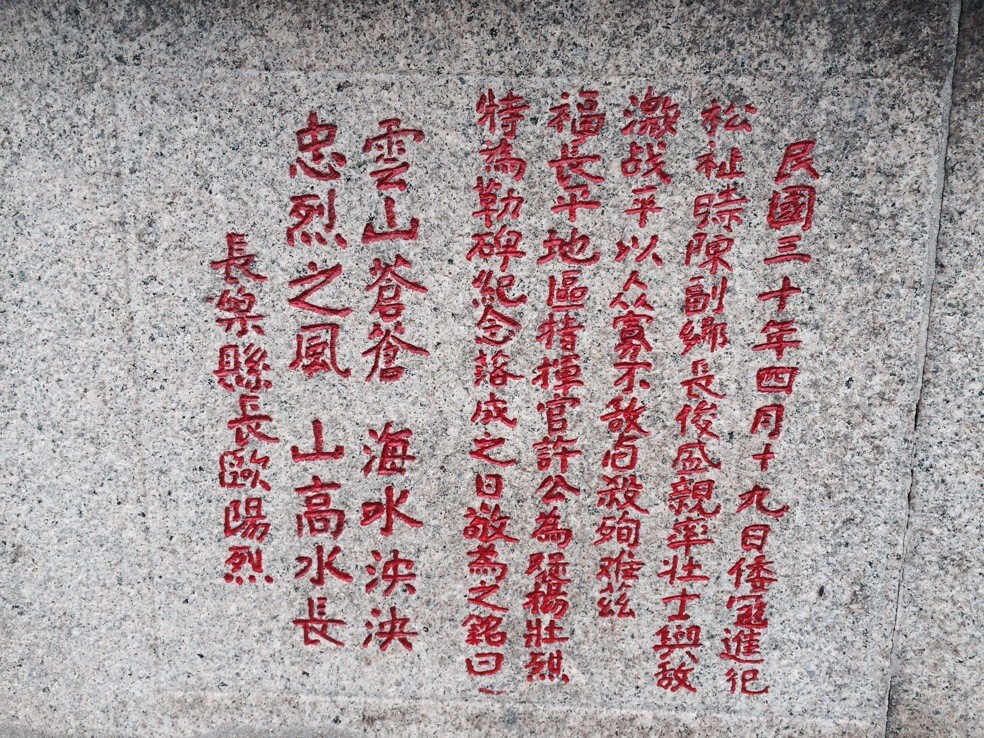 民國三十年四月十九日倭寇進犯
松祉時陳副鄉長俊盛親率壯士與敌
激战平以人众寡不敌自殺殉难兹
福長平地區特揮官許公為琼楊壯烈
特為勒碑紀念落成之日敬為之銘曰
雲山蒼蒼 海水泱泱
忠烈之風 山高水長
長樂縣長歐陽烈